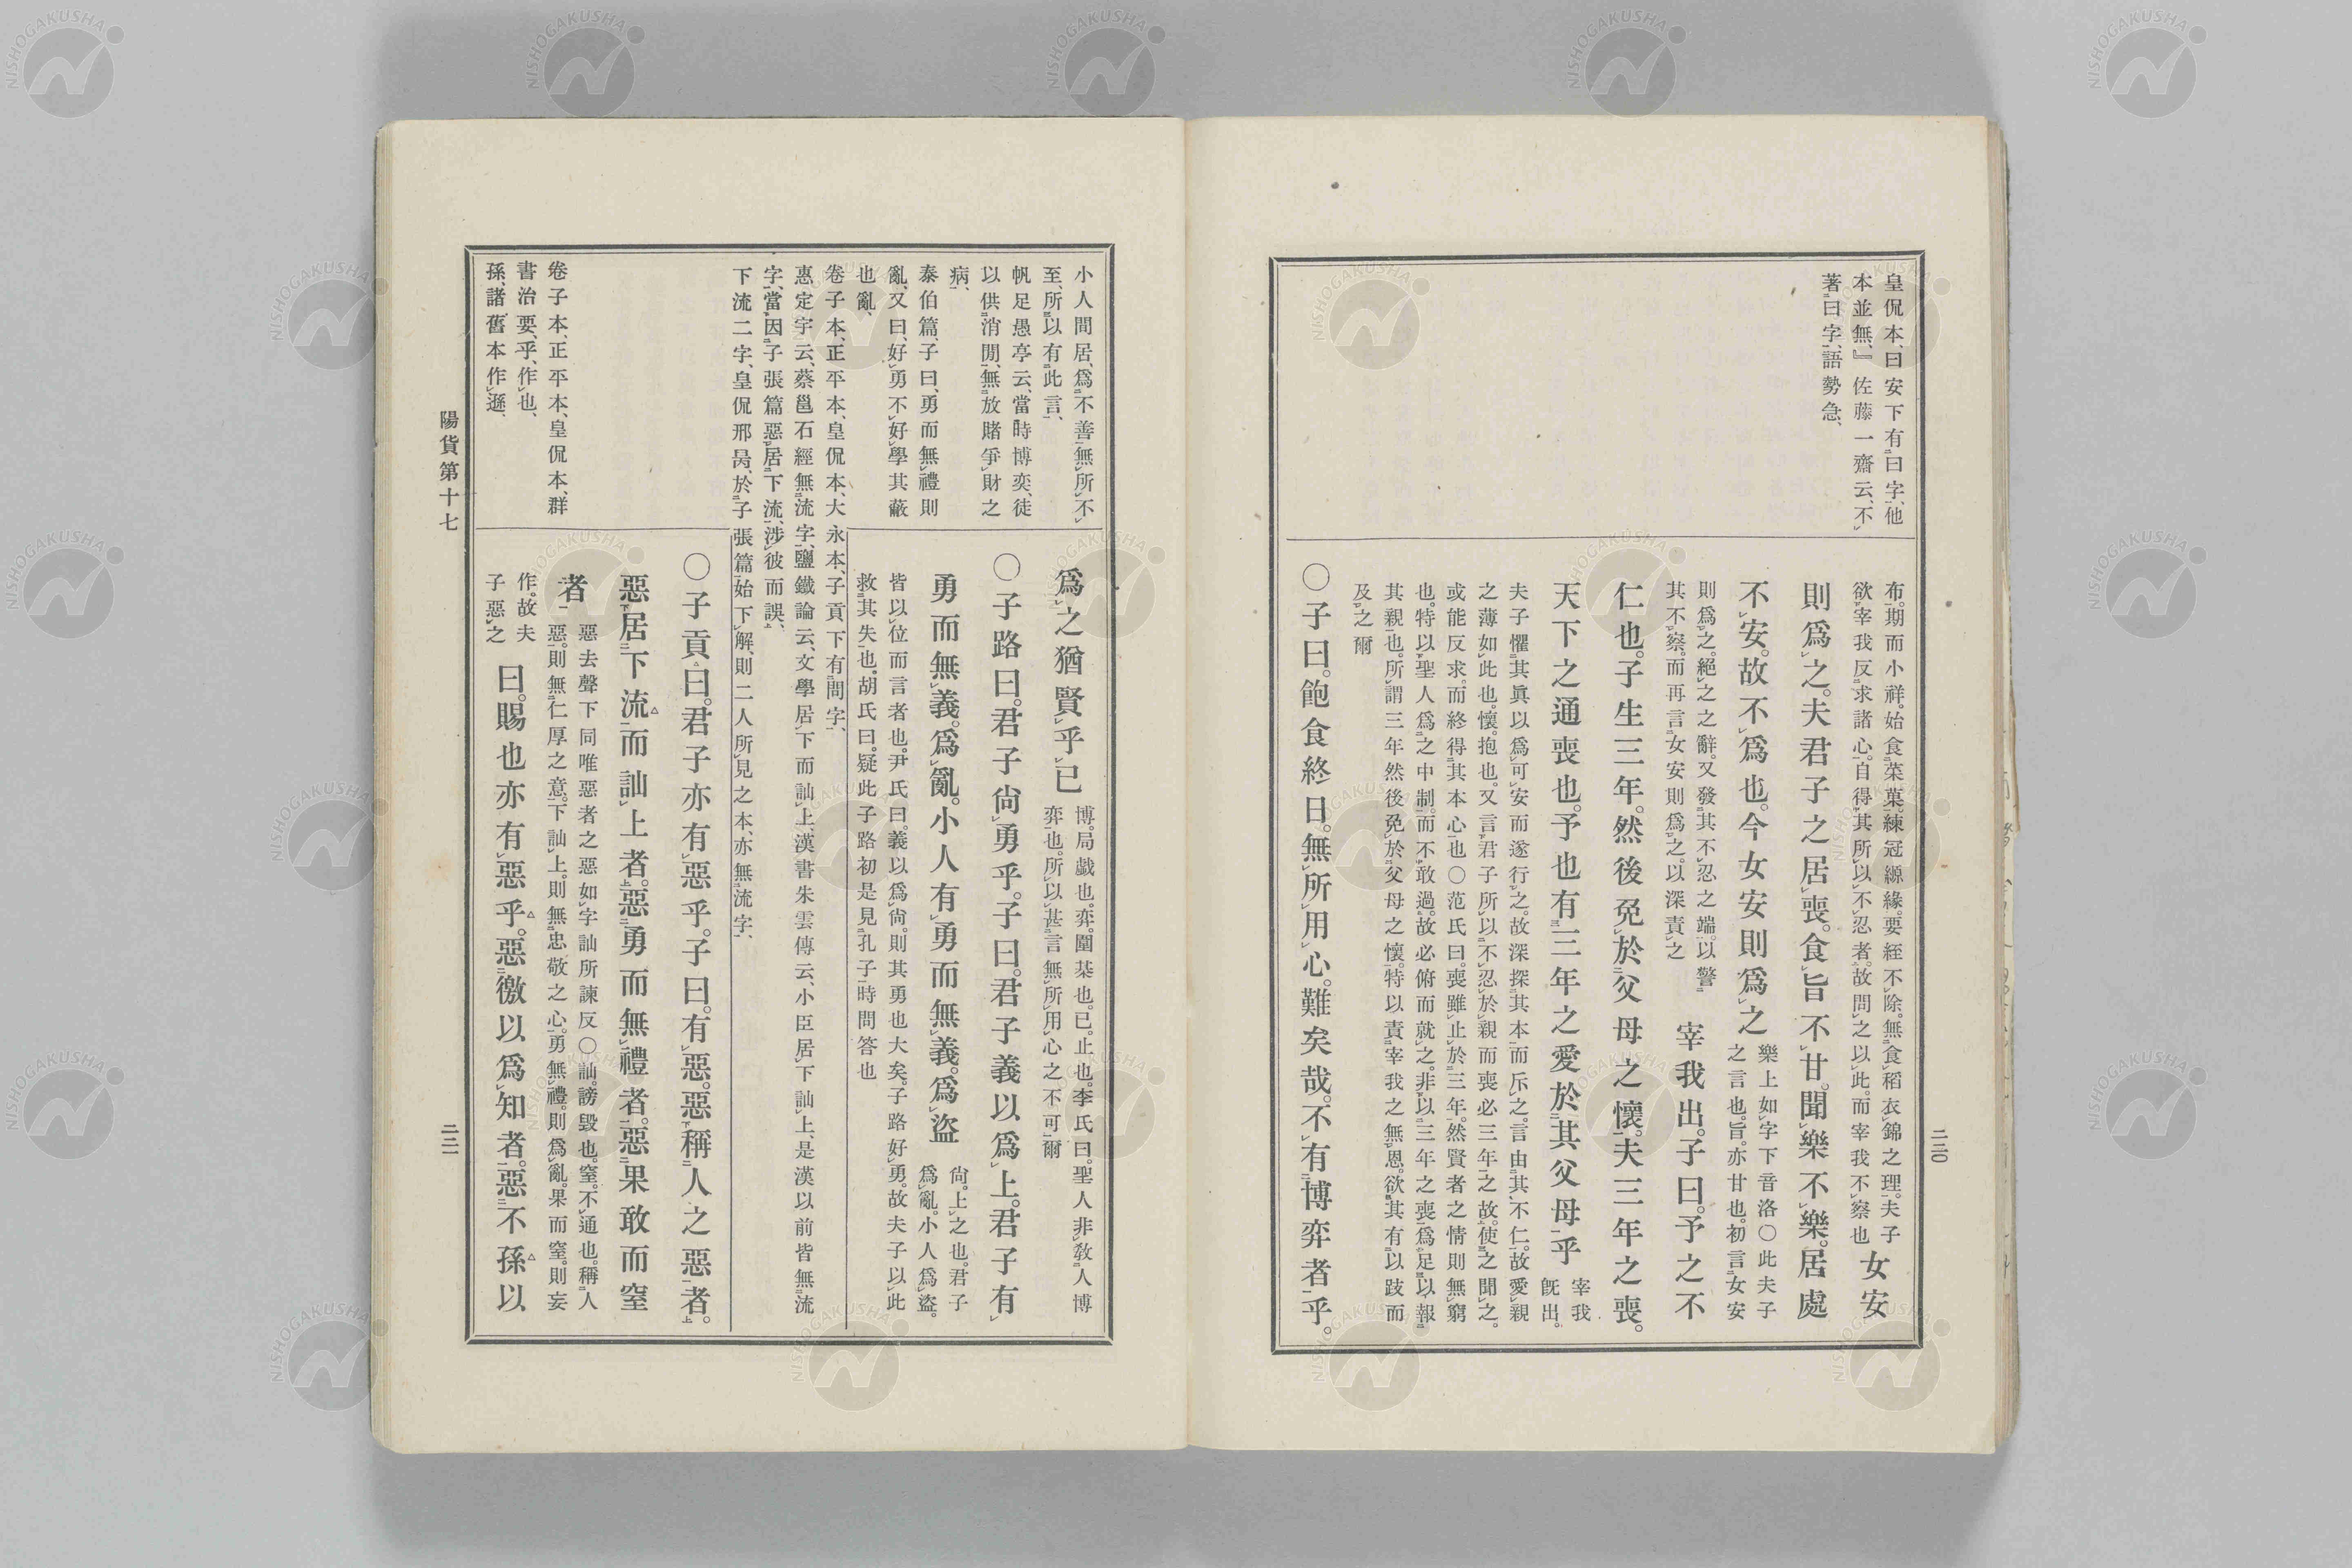 皇侃本、曰安下有曰字、他
本並無、』佐藤一齋云、不
著曰字、語勢急、
布。期而小祥。始食菜菓。練冠縓緣。要絰不除。無食稻衣錦之理。夫子
欲宰我反求諸心。自得其所以不忍者。故問之以此。而宰我不察也
女安
則爲之。夫君子之居喪。食旨不甘。聞樂不樂。居處
不安。故不爲也。今女安則爲之
樂上如字下音洛〇此夫子
之言也。旨。亦甘也。初言女安
則爲之。絕之之辭。又發其不忍之端。以警
其不察。而再言女安則爲之。以深責之
宰我出。子曰。予之不
仁也。子生三年。然後免於父母之懷。夫三年之喪。
天下之通喪也。予也有三年之愛於其父母乎
宰我
旣出。
夫子懼其眞以爲可安而遂行之。故深探其本而斥之。言由其不仁。故愛親
之薄如此也。懷。抱也。又言君子所以不忍於親而喪必三年之故。使之聞之。
或能反求。而終得其本心也〇范氏曰。喪雖止於三年。然賢者之情則無窮
也。特以聖人爲之中制而不敢過。故必俯而就之。非以三年之喪。爲足以報
其親也。所謂三年然後免於父母之懷。特以責宰我之無恩。欲其有以跂而
及之爾
〇子曰。飽食終日。無所用心。難矣哉。不有博弈者乎。
二二〇
小人間居、爲不善無所不
至、所以有此言、
帆足愚亭云、當時博奕、徒
以供消閒、無放賭爭財之
病、
泰伯篇、子曰、勇而無禮則
亂、又曰、好勇不好學其蔽
也亂、
卷子本、正平本、皇侃本、大永本、子貢下有問字、
惠定宇云、蔡邕石經無流字、鹽鐵論云、文學居下而訕上、漢書朱雲傳云、小臣居下訕上、是漢以前皆無流
字、當因子張篇惡居下流、涉彼而誤、
下流二字、皇侃邢昺、於子張篇始下解、則二人所見之本、亦無流字、
卷子本、正平本、皇侃本、群
書治要、乎、作也、
孫、諸舊本作遜、
爲之猶賢乎已
博。局戲也。弈。圍棊也。已。止也。李氏曰。聖人非敎人博
弈也。所以甚言無所用心之不可爾
〇子路曰。君子尙勇乎。子曰。君子義以爲上。君子有
勇而無義。爲亂。小人有勇而無義。爲盜
尙。上之也。君子
爲亂。小人爲盜。
皆以位而言者也。尹氏曰。義以爲尙。則其勇也大矣。子路好勇。故夫子以此
救其失也。胡氏曰。疑此子路初見孔子時問答也
〇子貢曰。君子亦有惡乎。子曰。有惡。惡稱人之惡者。
惡居下流而訕上者。惡勇而無禮者。惡果敢而窒
者
惡去聲下同唯惡者之惡如字訕所諫反〇訕。謗毀也。窒。不通也。稱人
惡。則無仁厚之意。下訕上。則無忠敬之心。勇無禮。則爲亂。果而窒。則妄
作。故夫
子惡之
曰。賜也亦有惡乎。惡徼以爲知者。惡不孫以
陽貨第十七
二二一